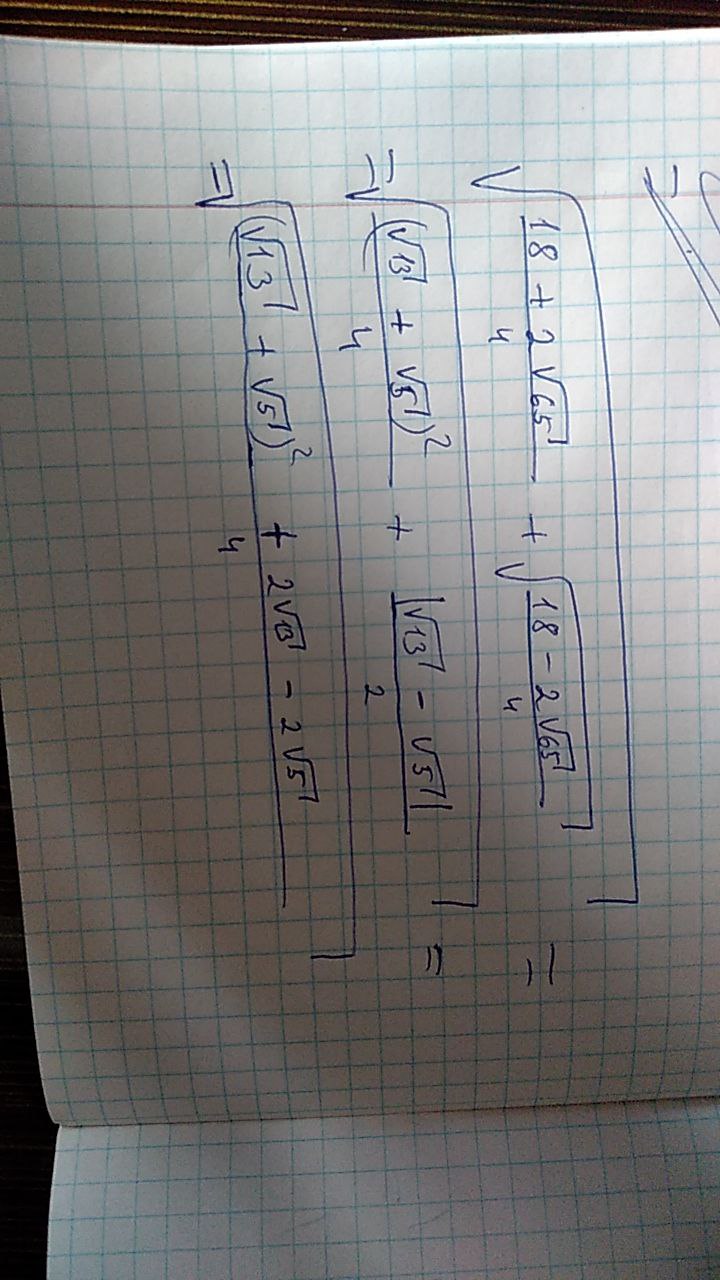 =
√((18 + 2√65)/4 + √((18 - 2√65)/4)) =
= √((√13 + √5)²/4 + |√13 - √5|/2) =
= √(((√13 + √5)² + 2√13 - 2√5)/4)